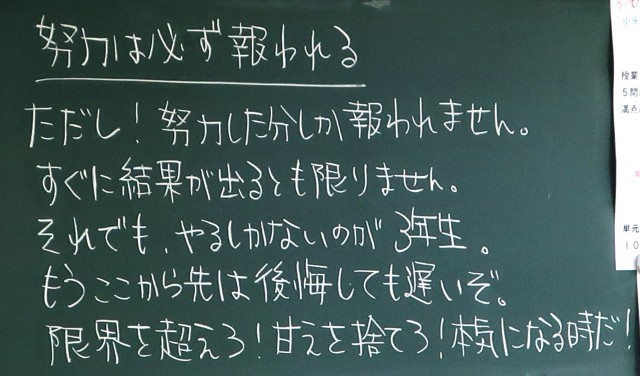 努力は必ず報われる
ただし！努力した分しか報われません。
すぐに結果が出るとも限りません。
それでも、やるしかないのが3年生。
もうここから先は後悔しても遅いぞ。
限界を超えろ！甘えを捨てろ！本気になる時だ！
授業
5問
満点
単元
10